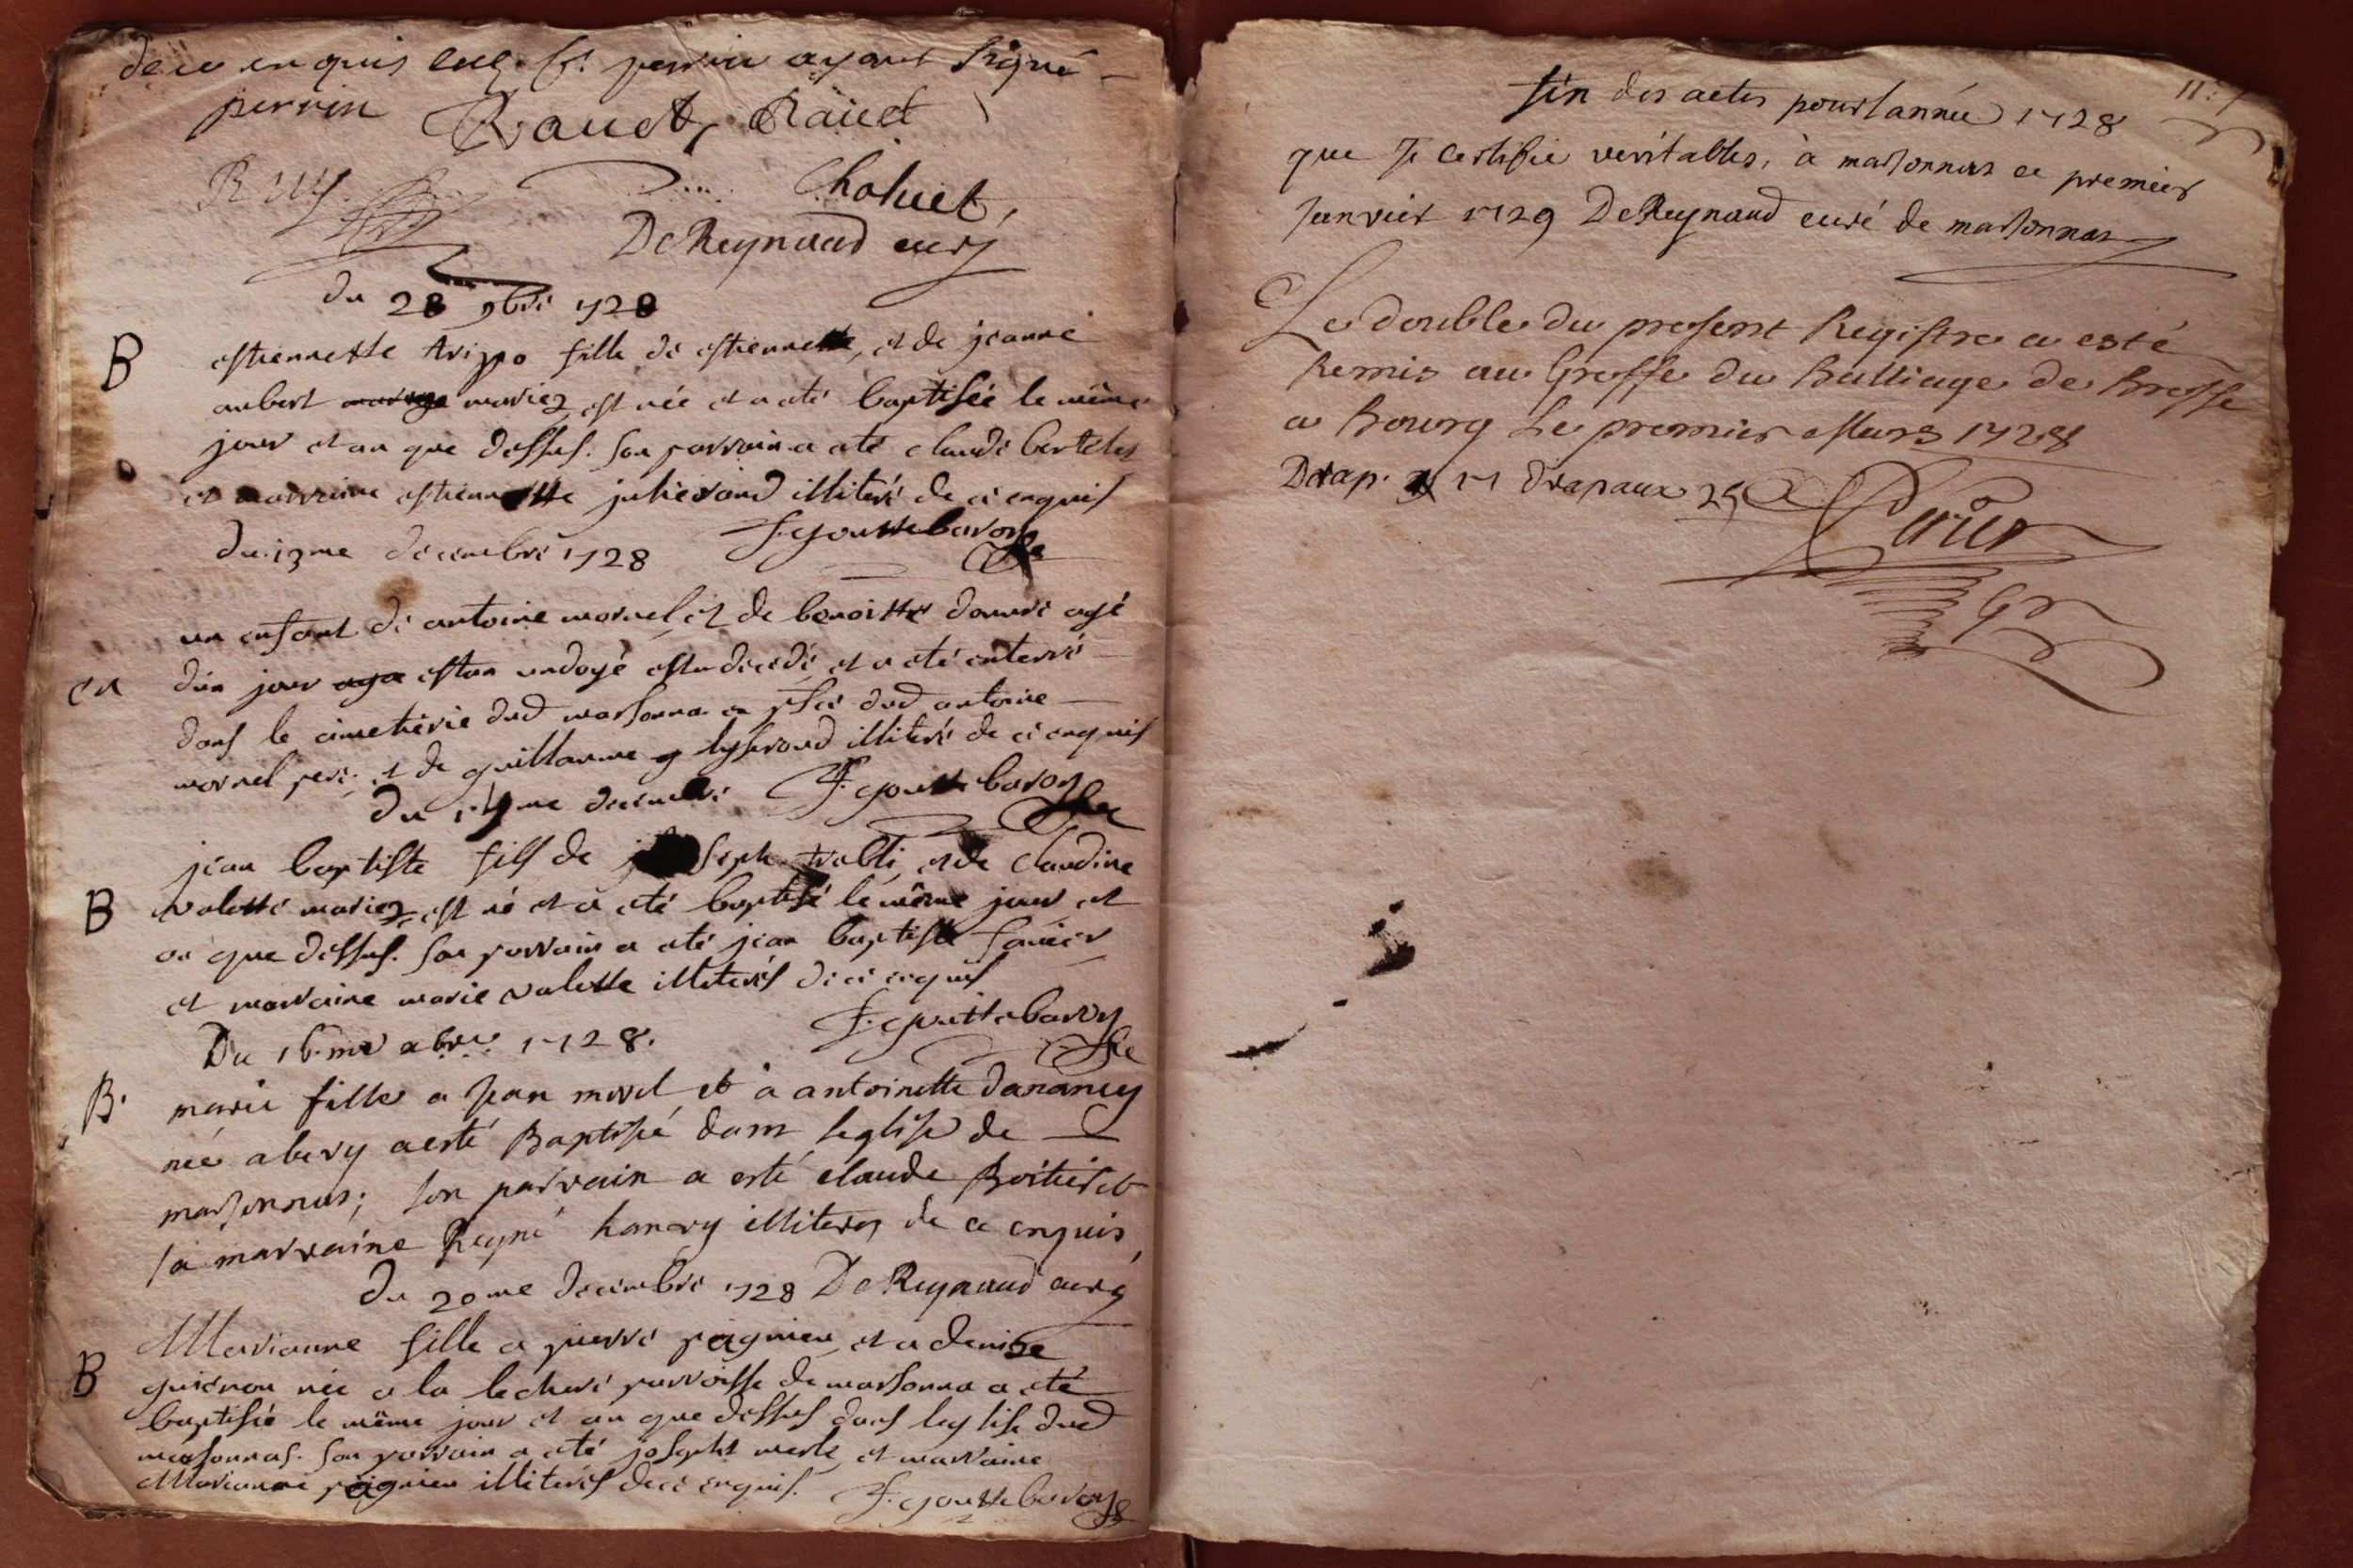 de ce enquis led. Sr. perrin ayant signé
perrin Raudt, Raudt
Choluet,
DeReynaud curé
du 28 9bre 1728
B estiennette trippo fille de estiennette, et de jeanne
aubert mariez est née et a eté baptisée le même
jour et an que dessus. son parrain a eté claude bertelet
et marraine estiennette julierand illiteré de ce enquis
du 13me decembre 1728 F. gouttebaron
un enfant de antoine mornel, et de benoitte age
en d'un jour estan ondoyé est decedé, et a eté enterré
dans le cimetierie dud marsonna en psce dud antoine
mornel pere, et de guillaume illiteré de ce enquis
du decembre F. gouttebaron
jean baptiste fils de joseph et de claudine
B valette mariez est né et a eté baptisé le même jour et
an que dessus. son parrain a eté jean baptiste
et marraine marie valette illiterés de ce enquis
F. gouttebaron
Du 16.me xbre 1728.
B. marie fille a Jean morel et à antoinette dananey
née a bevy a esté Baptisé dans leglise de
marsonnas; son parrain a esté claude Boitiers et
sa marraine Reyné hanery illiterez de ce enquis
du 20me decembre 1728 DeReynaud curé
Marianne fille a pierre pagnieu, et a denise
B guienon née a la lechere parroisse de marsonna a eté
baptisée le même jour et an que dessus dans leglise dud
marsonnas. son parrain a eté josepht merle, et marraine
Marianne pagnieu illiterés de ce enquis. F. gouttebaron
fin des actes pour lannée 1728
que Je certifie veritables, à marsonnas ce premier
Janvier 1729 DeReynaud curé de marsonnas
Le double du present Registre a esté
Remis au Greffe du Balliage de Bresse
a Bourg Le premier Mars 1728
Drap. 11 drapaux